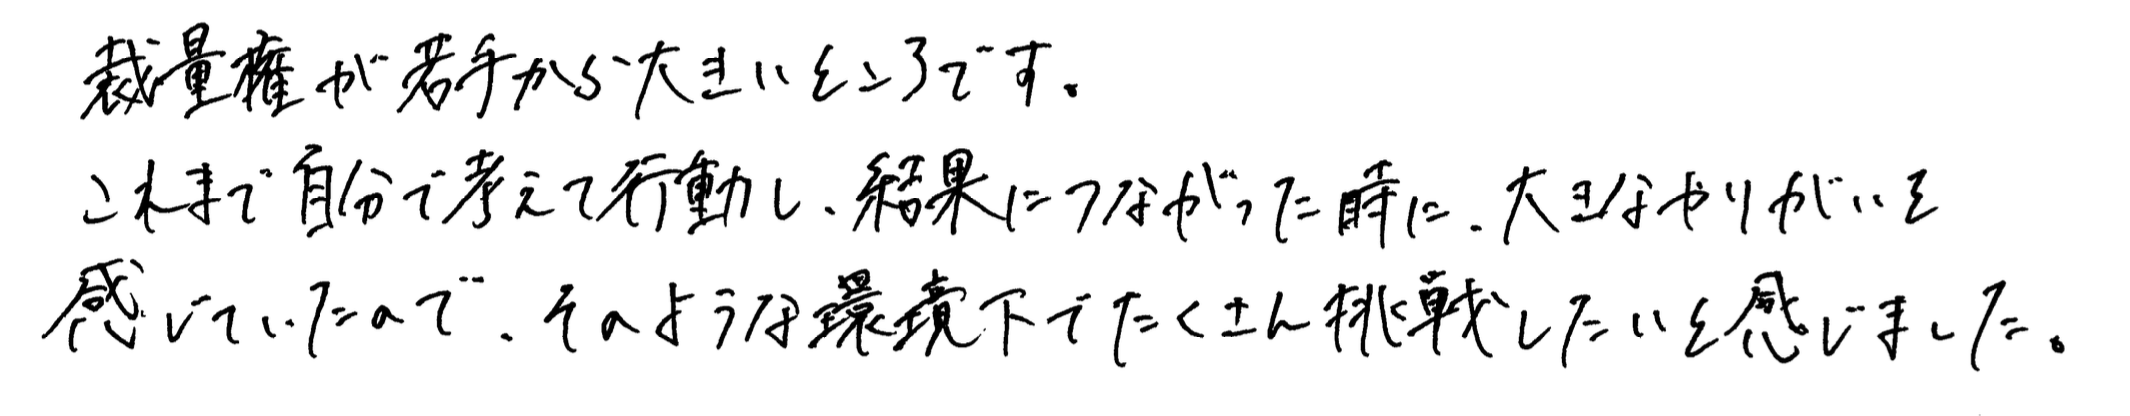 裁量権が若手から大きいところです。
これまで自分で考えて行動し、結果につながった時に、大きなやりがいを
感じていたので、そのような環境下でたくさん挑戦したいと感じました。